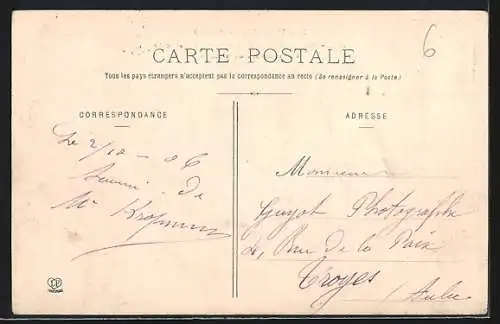 6
CARTE POSTALE
Tous les pays étrangers n'acceptent pas la correspondance au recto (Se renseigner à la Poste)
CORRESPONDANCE
ADRESSE
Le 2/10 - 06
de
Mr
Monsieur
Guyot Photographe
Rue de la Paix
Troyes
Aube